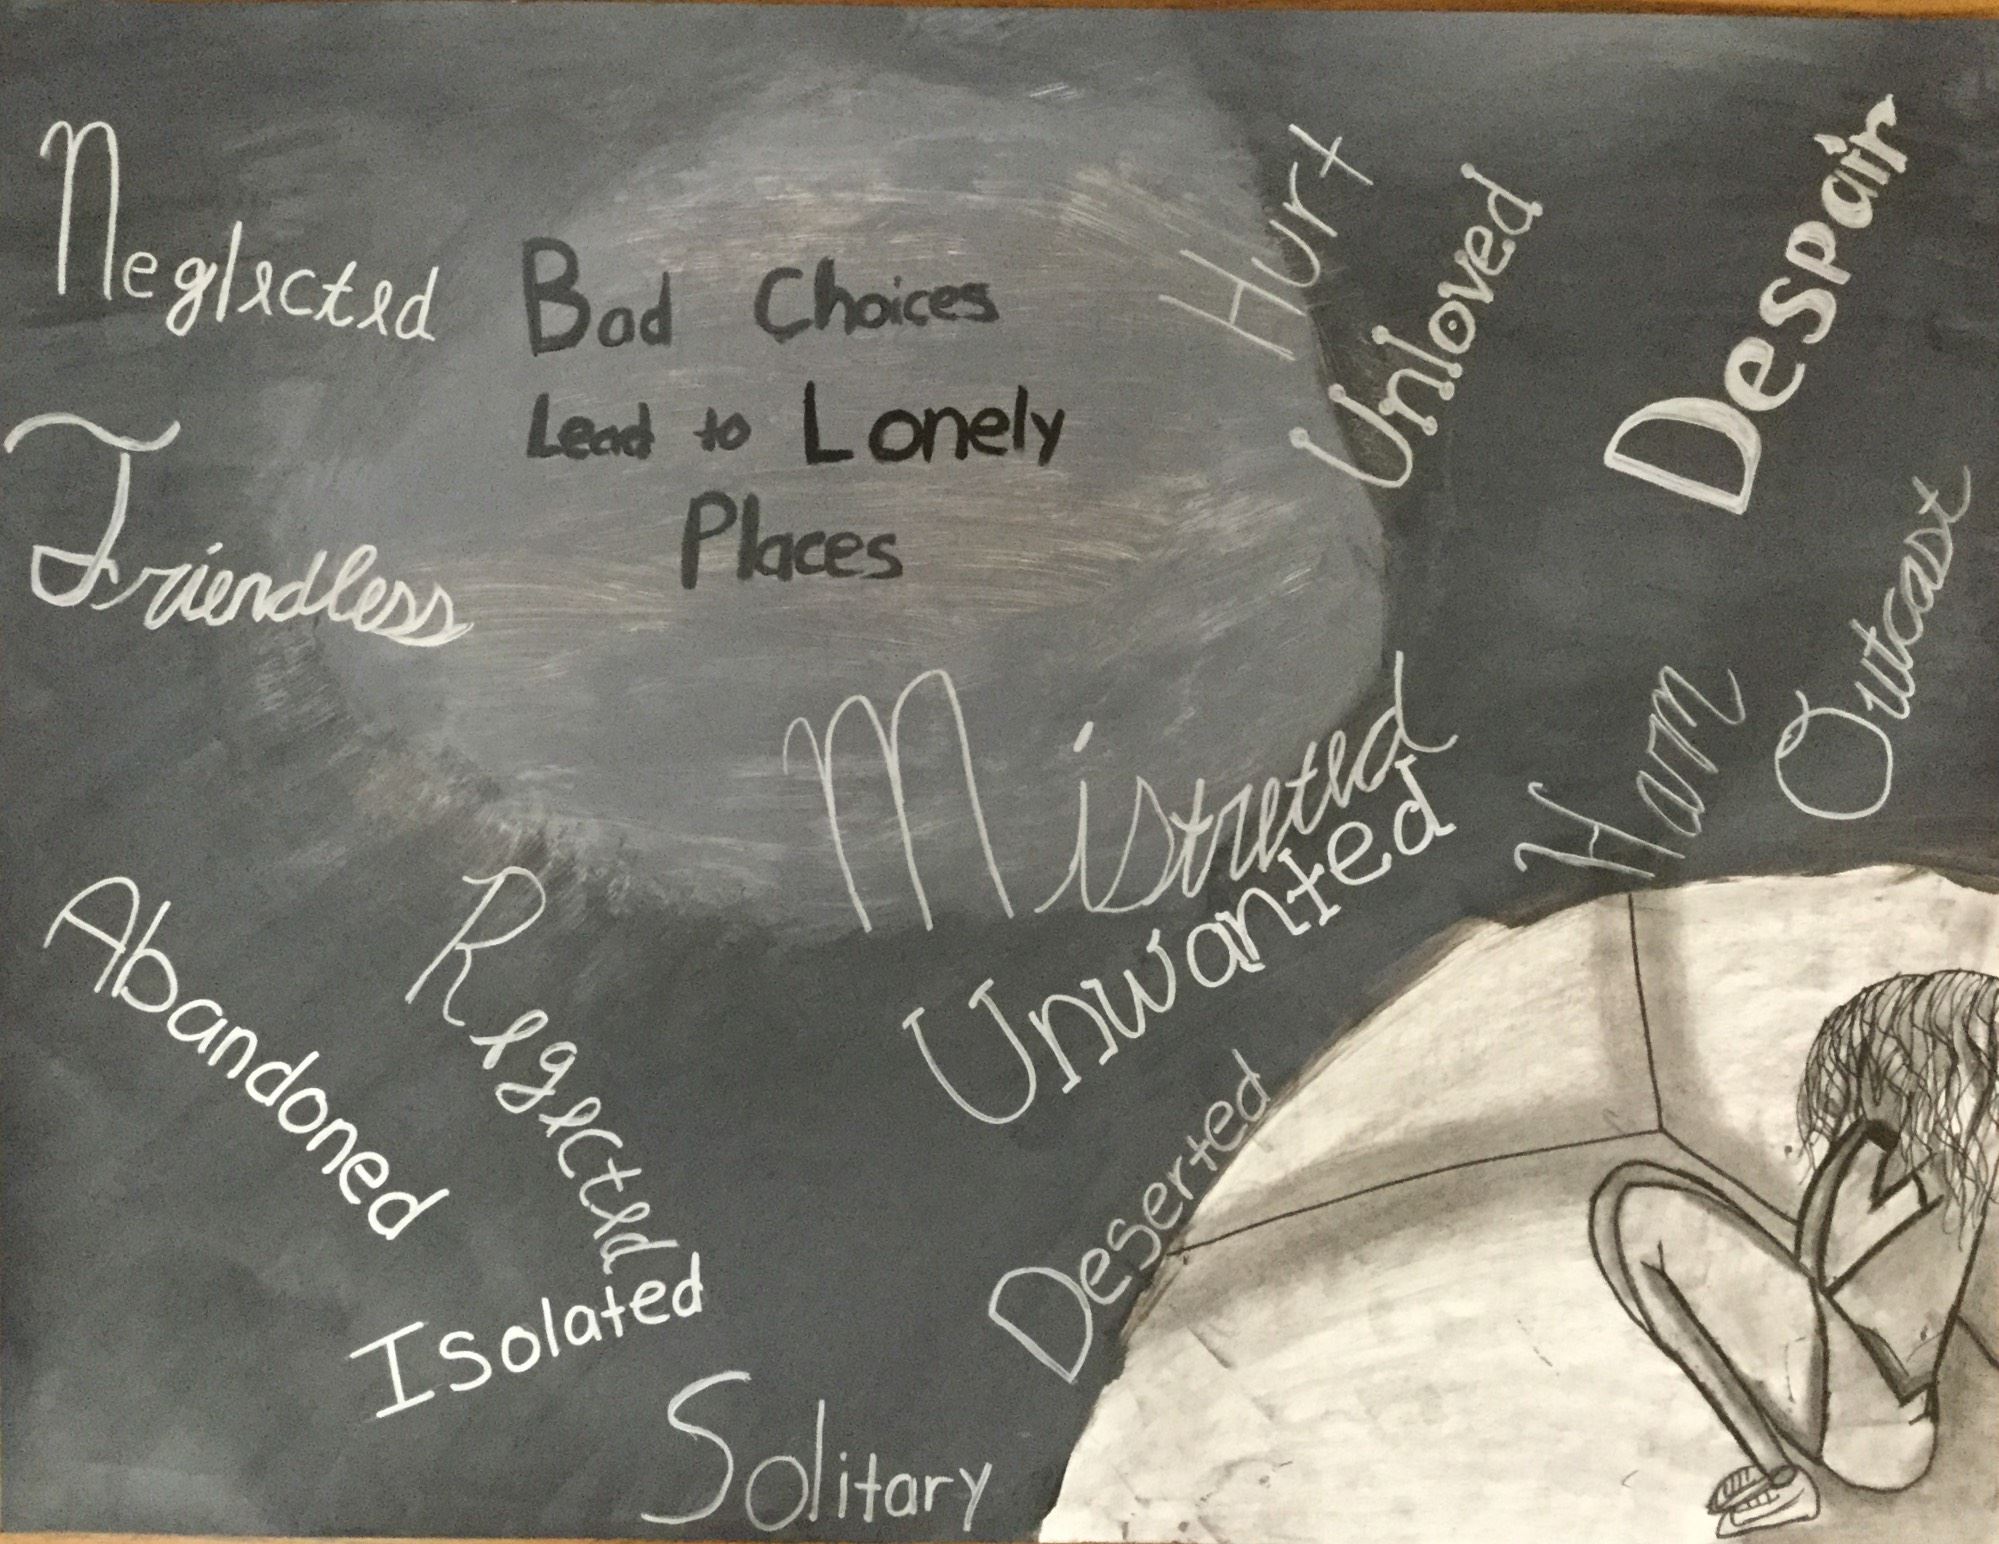 Neglected
Bad Choices
Lead to Lonely
Places
Hurt
Unloved
Despair
Friendless
Outcast
Ham
Mistreted
Unwanted
Abandoned
Regected
Deserted
Isolated
Solitary